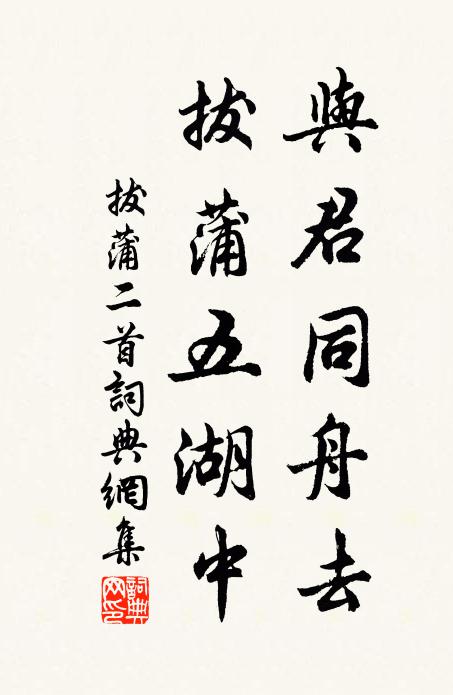 與君同舟去
拔蒲五湖中
拔蒲二首詞典網集
詞典網印